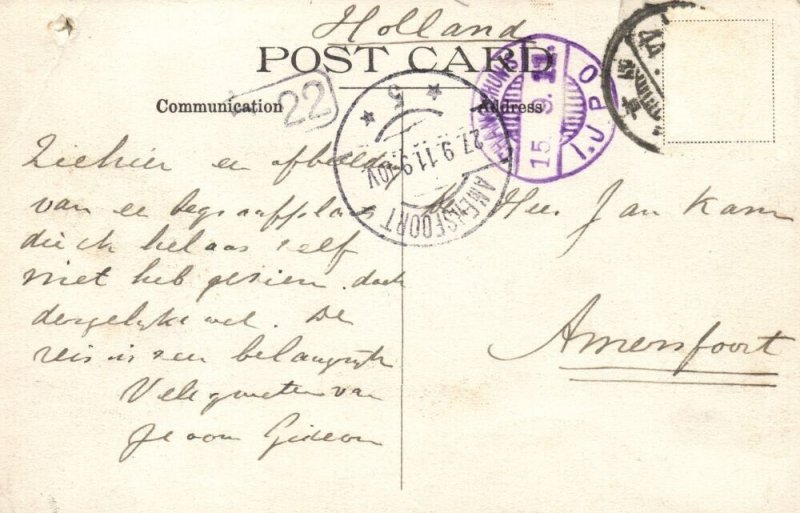 Holland
POST CARD
Communication
Address
22
AMERSFOORT
27.9.11.9-10V
5
SHANGHAI
15.9.11.
I.J.P.O
44
Ziehier een afbeelding
van een begraafplaats
die ik helaas zelf
niet heb gezien, doch
dergelijke wel. De
reis is zeer belangrijk
Vele groeten van
Je oom Gideon
Heer Jan Kam
Amersfoort